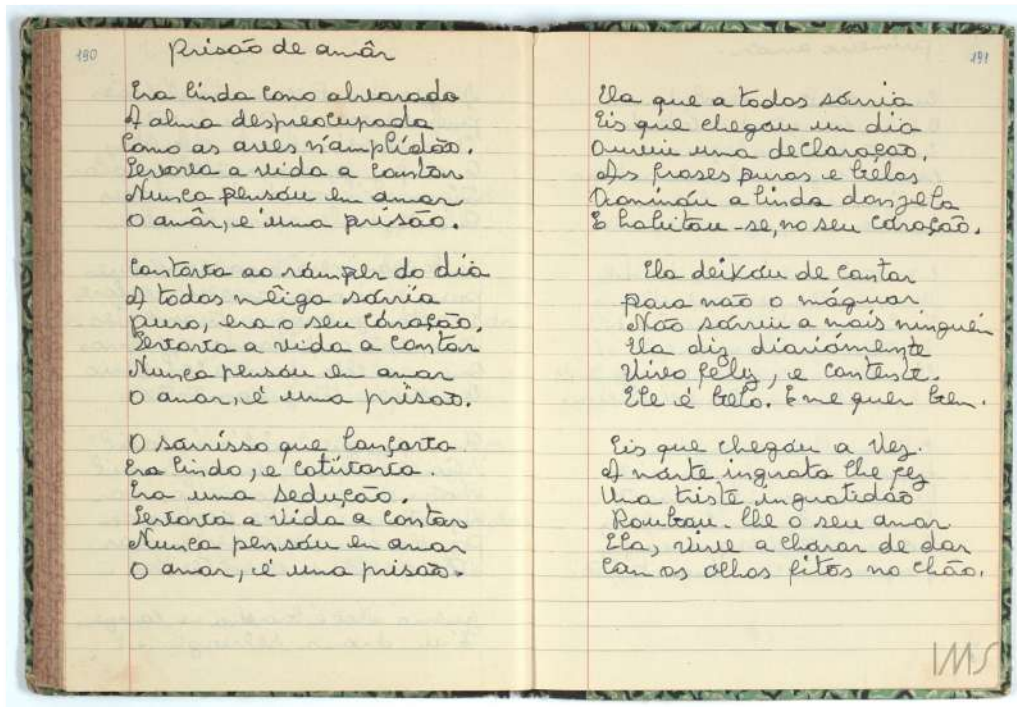 190
Prisão de amôr
Era linda como alvorada
A alma despreocupada
Como as aves n'amplidão.
Levava a vida a cantar
Nunca pensou em amar
O amôr, é uma prisão.
Cantava ao romper do dia
A todos mêiga sórria
puro, era o seu córação.
Levava a vida a cantar
Nunca pensóu em amar
O amor, é uma prisão.
O sórrisso que lançava
Era lindo, e cativava.
Era uma sedução.
Levava a vida a cantar
Nunca pensóu em amar
O amor, é uma prisão.
191
Ela que a todos sórria
Eis que chegou um dia
Ouviu uma declaração.
As frases puras e bélas
Dominóu a linda donzela
E habitou-se, no seu coração.
Ela deixóu de cantar
para não o máguar
Não sórriu a mais ninguém
Ela diz diariámente
Vivo feliz, e contente.
Ele é belo. E me quer bem.
Eis que chegóu a vez.
A morte ingrata lhe fez
Uma triste ingratidão
Roubou-lhe o seu amor
Ela, vive a chorar de dor
Com os olhos fitos no chão.
IMS